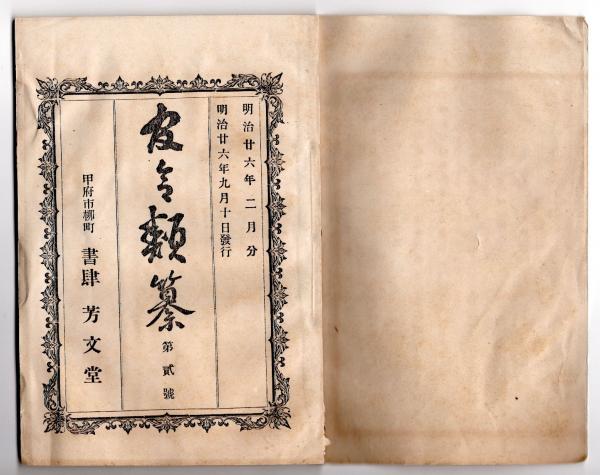 明治廿六年二月分
明治廿六年九月十日發行
官令類纂 第貳號
甲府市柳町 書肆 芳文堂